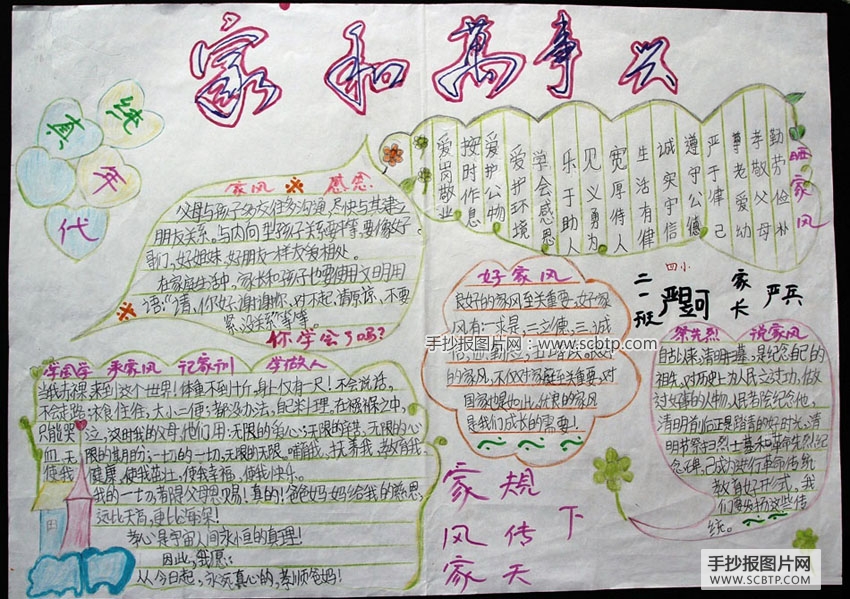 家和萬事兴
传统
年代
家风 感恩
父母与孩子多放任多沟通,尽快与其建立
朋友关系。与内向型孩子关系要平等,要像好哥
们,好姐妹,好朋友一样友爱相处。
在家庭生活中,家长和孩子也要使用文明用
语:"请,你好,谢谢你,对不起,请原谅,不要
紧,没关系"等等。
你学会了吗?
晒家风
勤劳俭朴
孝敬父母
尊老爱幼
严于律己
遵守公德
诚实守信
生活有律
宽厚待人
见义勇为
乐于助人
学会感恩
爱护环境
爱护公物
按时作息
爱岗敬业
好家风
良好的家风至关重要。好家
风有:一求是,二立德,三诚
的家风,不仅对家庭至关重要,对
国家
是我们成长的需要!
四小
二一班
家长 严兵
手抄报图片网 - www.scbtp.com
祭先烈 说家风
自古以来,清明扫墓,是纪念自己的
祖先,对历史上为人民立过功,做
过好事的人物,人民都会纪念他,
清明前后正是踏青的好时光,清
明节祭扫烈士墓和革命先烈纪
念碑,已成为进行革命传统
教育好形式,我
们要发扬这些传
统。
学国学 承家风 记家训 学做人
当我赤裸,来到这个世界!体重不到十斤,身上仅有一尺!不会说话,
不会走路;衣食住行,大小二便;都没办法,自己料理。在襁褓之中,
只能哭泣,这时我的父母,他们用:无限的爱心;无限的
血,无限的期盼;一切的一切,无限的无限。哺育我,抚养我,教育我,
使我健康,使我茁壮,使我幸福,使我快乐。
我的一切,都是父母恩赐!真的!爸爸妈妈给我的慈恩,
远比天高,更比海深!
孝心是宇宙人间永恒的真理!
因此,我愿:
从今日起,永远真心的,孝顺爸妈!
家规
家风传天下
手抄报图片网
WWW.SCBTP.COM